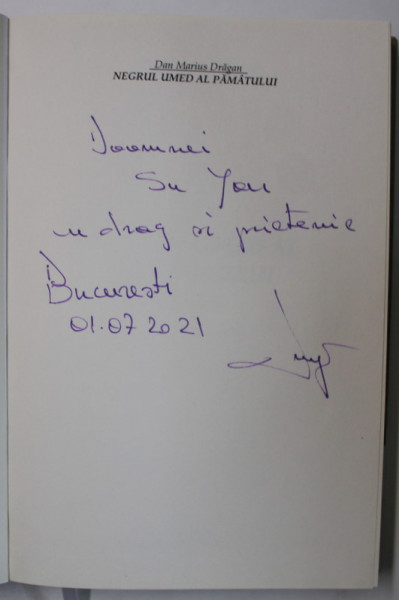 Dan Marius Drăgan
NEGRUL UMED AL PĂMÂTULUI
Doamnei
Su Yan
cu drag si prietenie
Bucuresti
01.07 2021